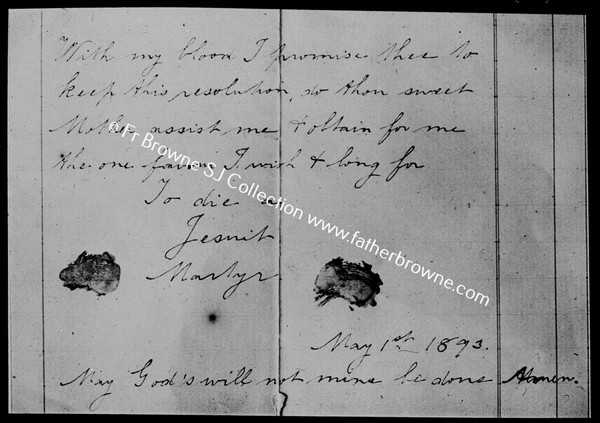 With my blood I promise thee to
keep this resolution, do thou sweet
Mother assist me, & obtain for me
the one favour I wish & long for
To die a
Jesuit
Martyr
May 1st 1893.
May God's will not mine be done Amen.
© Fr Browne SJ Collection www.fatherbrowne.com